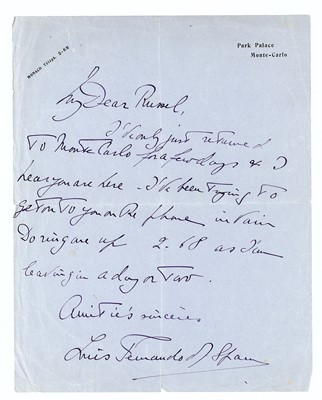 MONACO TELEPH. 2-68
Park Palace
Monte-Carlo
My Dear Russel,
I've only just returned
to Monte Carlo for a few days & I
hear you are here - I've been trying to
get on to you on the phone in vain
Do ring me up 2.68 as I'm
leaving in a day or two.
Amitiés sincères
Luis Fernando d' Spain